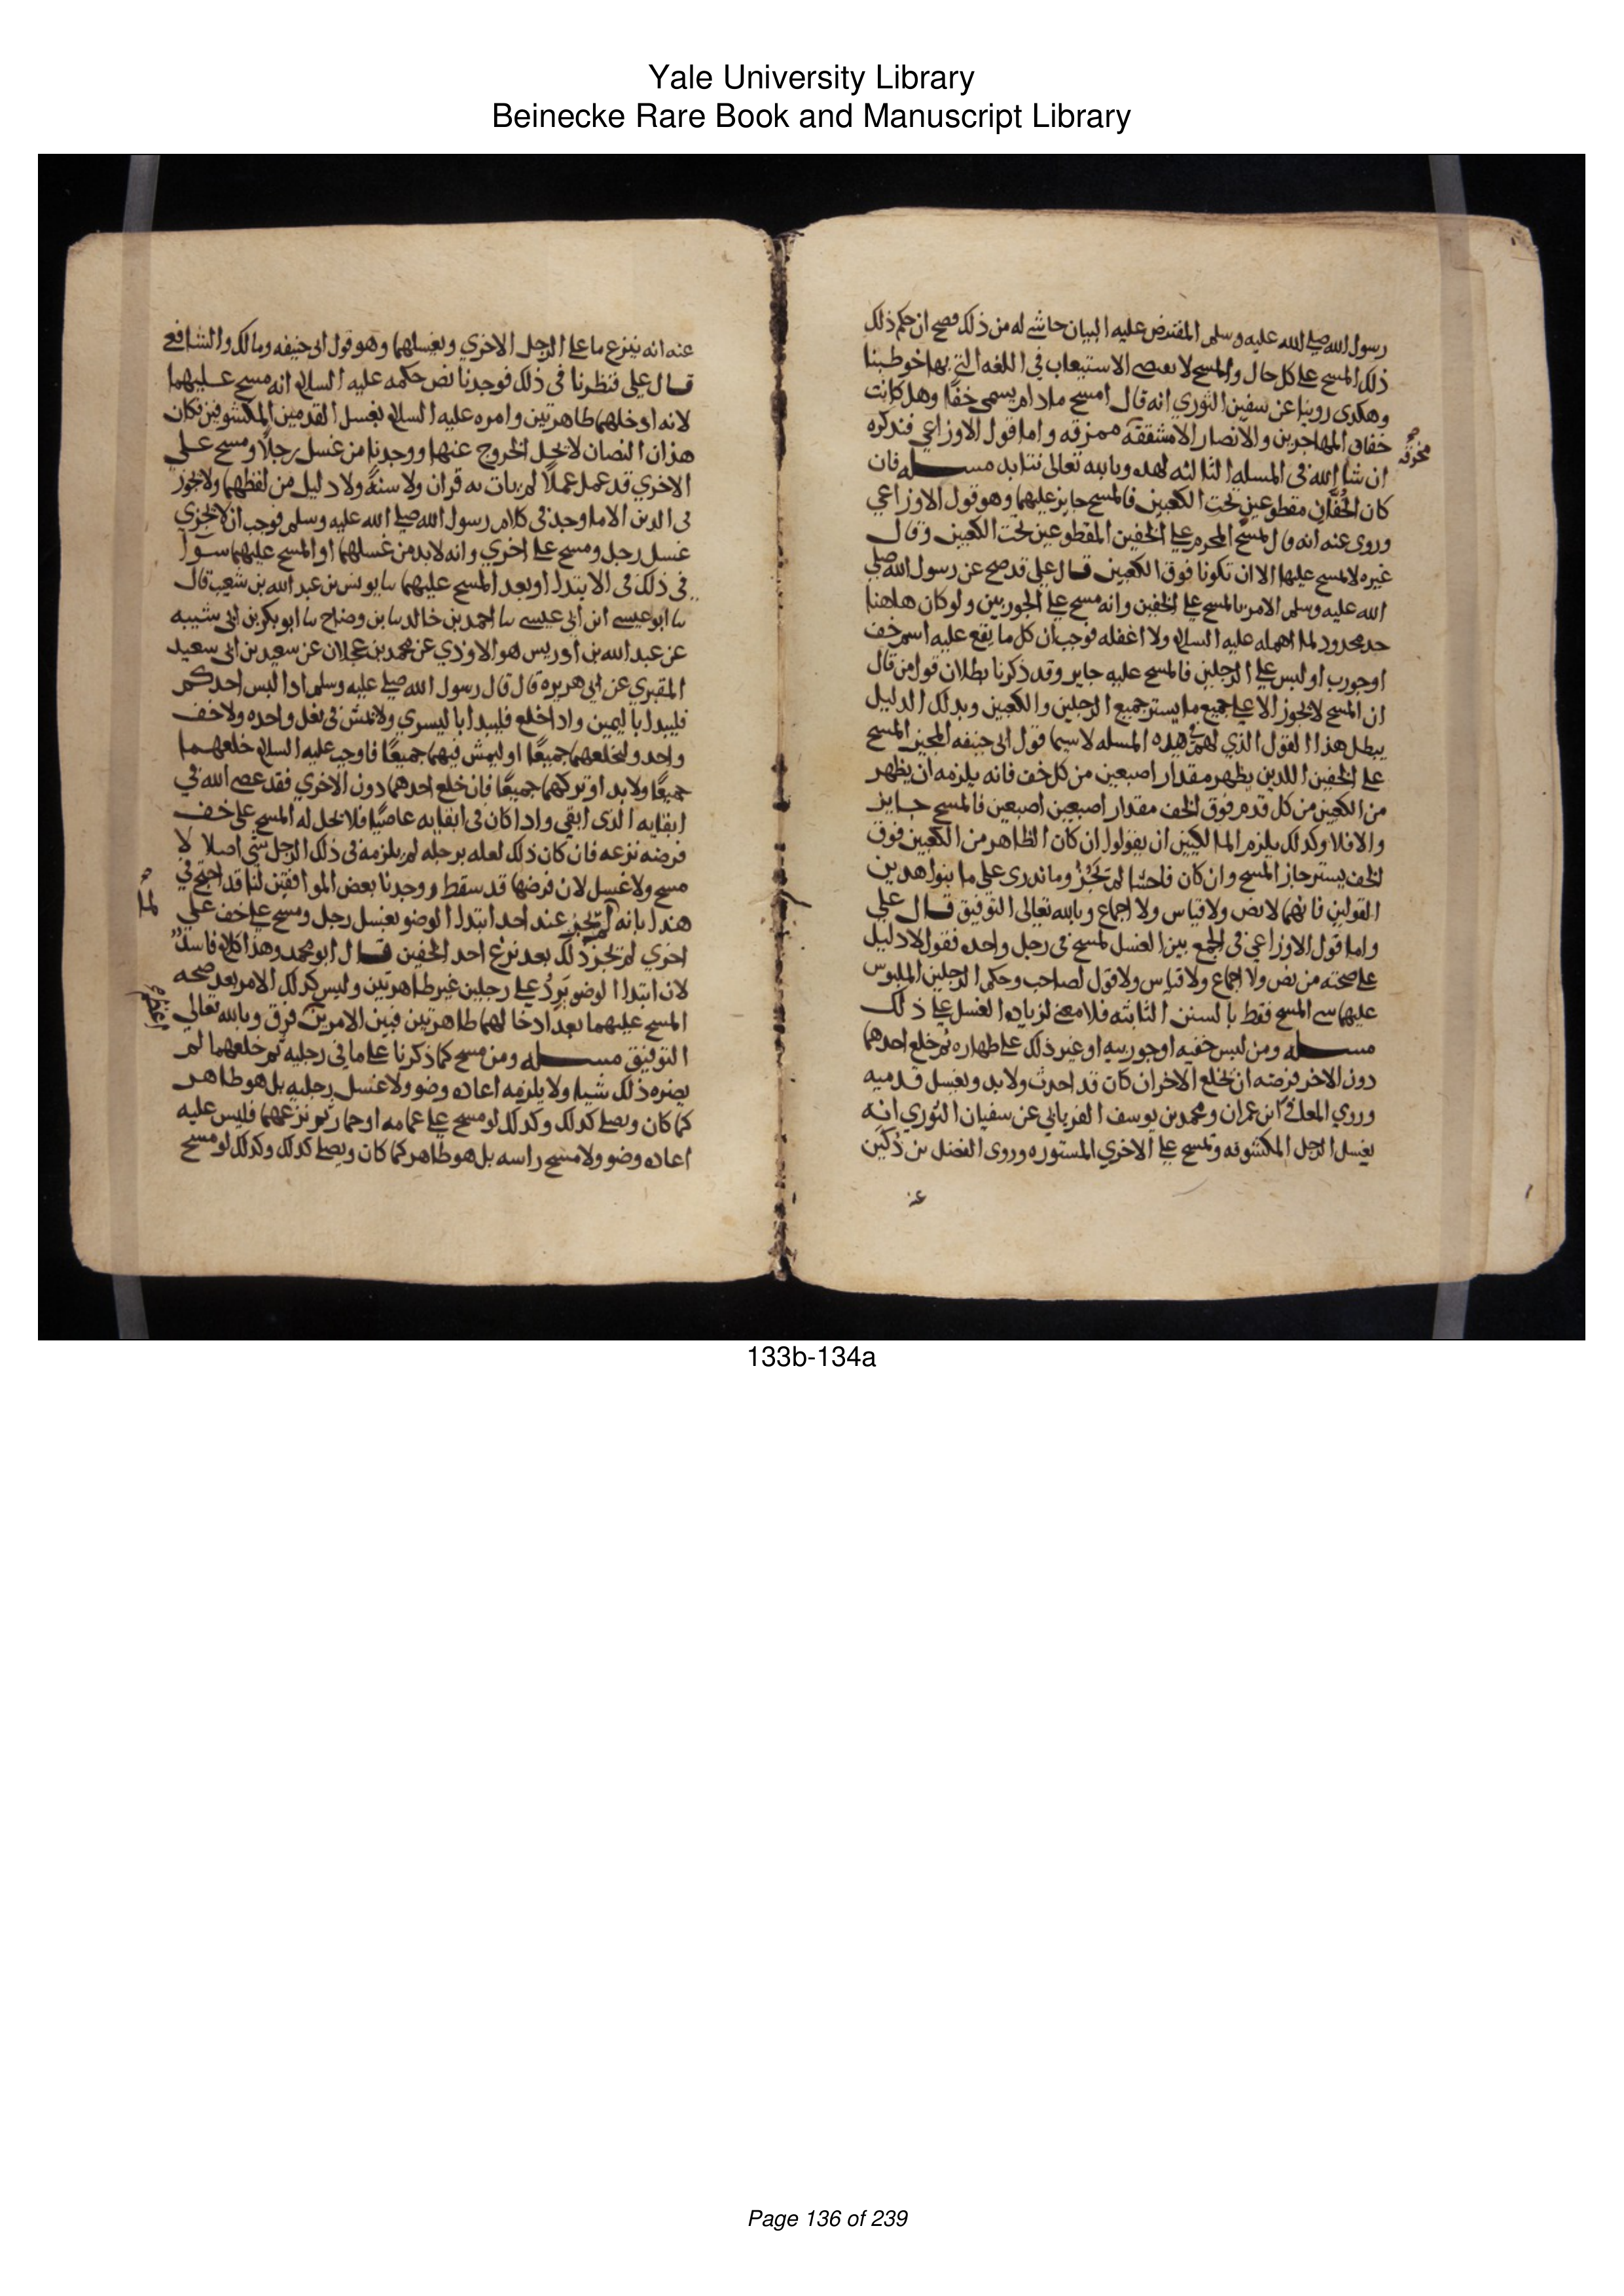 Yale University Library
Beinecke Rare Book and Manuscript Library
رسول الله صلى الله عليه وسلم المفترض عليه البيان حاشى له من ذلك فصح ان حكم ذلك
ذلك المسح على كل حال والمسح لا يقتضي الاستيعاب في اللغه التي بها خوطبنا
وهكذى روينا عن سفين الثوري انه قال امسح مادام يسمى خفا وهل كانت
خفاف المهاجرين والانصار الا مشققه ممزقه واما قول الاوزاعي فنذكره
مخرقه
ان شا الله في المسله الثالثه لهذه وبالله تعالى نتايد مسله فان
كان الخفان مقطوعين تحت الكعبين فالمسح جايز عليهما وهو قول الاوزاعي
وروى عنه انه قال يمسح المحرم على الخفين المقطوعين تحت الكعبين وقال
غيره لا يمسح عليهما الا ان تكونا فوق الكعبين قال علي قد صح عن رسول الله صلى
الله عليه وسلم الامر بالمسح على الخفين وانه مسح على الجوربين ولو كان هاهنا
حد محدود لما اهمله عليه السلام ولا اغفله فوجب ان كل ما يقع عليه اسم خف
او جورب او لبس على الرجلين فالمسح عليه جايز وقد ذكرنا بطلان قول من قال
ان المسح لا يجوز الا على جميع ما يستر جميع الرجلين والكعبين وبذلك الدليل
يبطل هذا القول الذي لهم في هذه المسله لا سيما قول ابي حنيفه المجيز المسح
على الخفين اللذين يظهر مقدار اصبعين من كل خف فانه يلزمه ان يظهر
من الكعبين من كل قدم فوق الخف مقدار اصبعين اصبعين فالمسح جايز
والا فلا وكذلك يلزم المالكيين ان يقولوا ان كان الظاهر من الكعبين فوق
الخف يستر جاز المسح وان كان فاحشا لم يجز وما ندري على ما بنوا هذين
القولين فانهما لا نص ولا قياس ولا اجماع وبالله تعالى التوفيق قال علي
واما قول الاوزاعي في الجمع بين الغسل لمسح في رجل واحده فقول لا دليل
على صحته من نص ولا اجماع ولا قياس ولا قول لصاحب وحكم الرجلين الملبوس
عليهما شي المسح فقط بالسنن الثابته فلا معنى لزياده الغسل على ذلك
مسله ومن لبس خفيه او جوربيه او غير ذلك على طهاره ثم خلع احدهما
دون الاخر ففرضه ان يخلع الاخر ان كان قد احدث ولابد ويغسل قدميه
وروي المعافى ابن عمران ومحمد بن يوسف الفريابي عن سفيان الثوري انه
يغسل الرجل المكشوفه ويمسح على الاخري المستوره وروى الفضل بن دكين
عنه
عنه انه ينزع ما على الرجل الاخري ويغسلهما وهو قول ابي حنيفه ومالك والشافعي
قال علي فنظرنا في ذلك فوجدنا نص حكمه عليه السلام انه مسح عليهما
لانه ادخلهما طاهرتين وامره عليه السلام بغسل القدمين المكشوفين فكان
هذان النصان لا يحل الخروج عنهما ووجدنا من غسل رجلا ومسح على
الاخري قد عمل عملا لم يات به قران ولا سنة ولا دليل من لفظهما ولا يجوز
في الدين الا ما وجد في كلام رسول الله صلى الله عليه وسلم فوجب ان لا يجزي
غسل رجل ومسح على اخري وانه لابد من غسلهما او المسح عليهما سوآ
في ذلك في الابتدا او بعد المسح عليهما نا يونس بن عبد الله بن شعيب قال
نا ابو عيسى ابن ابي عيسى نا احمد بن خالد نا بن وضاح نا ابو بكر بن ابي شيبه
عن عبد الله بن ادريس هو الاودي عن محمد بن عجلان عن سعيد بن ابي سعيد
المقبري عن ابي هريره قال قال رسول الله صلى عليه وسلم اذا لبس احدكم
فليبدا باليمين واذا خلع فليبدا باليسري ولا يمش في نعل واحده ولا خف
واحد وليخلعهما جميعًا او ليمش فيهما جميعًا فاوجب عليه السلام خلعهما
جميعًا ولابد او تركهما جميعًا فان خلع احدهما دون الاخري فقد عصى الله في
ابقايه الذي ابقي واذا كان في ابقايه عاصيًا فلا يحل له المسح على خف
فرضه نزعه فان كان ذلك لعله برجله لم يلزمه في ذلك الرجل شي اصلا لا
مسح ولا غسل لان فرضها قد سقط ووجدنا بعض الموافقين لنا قد احتج في
هذا بانه لم يجز عند احد ابتدا الوضو بغسل رجل ومسح على خف على
لما
اخري لم يجز ذلك بعد نزع احد الخفين قال ابو محمد وهذا كلام فاسد
لان ابتدا الوضو يرد على رجلين غير طاهرتين وليس كذلك الامر بعد صحه
المسح عليهما بعد ادخالهما طاهرتين فبين الامرين فرق وبالله تعالى
التوفيق مسله ومن مسح كما ذكرنا على ما في رجليه ثم خلعهما لم
يضره ذلك شيا ولا يلزمه اعاده وضو ولا غسل رجليه بل هو طاهر
كما كان ويصلي كذلك وكذلك لو مسح على عمامه او خمار ثم نزعهما فليس عليه
اعاده وضو ولا مسح راسه بل هو طاهر كما كان ويصلي كذلك وكذلك لو مسح
133b-134a
Page 136 of 239